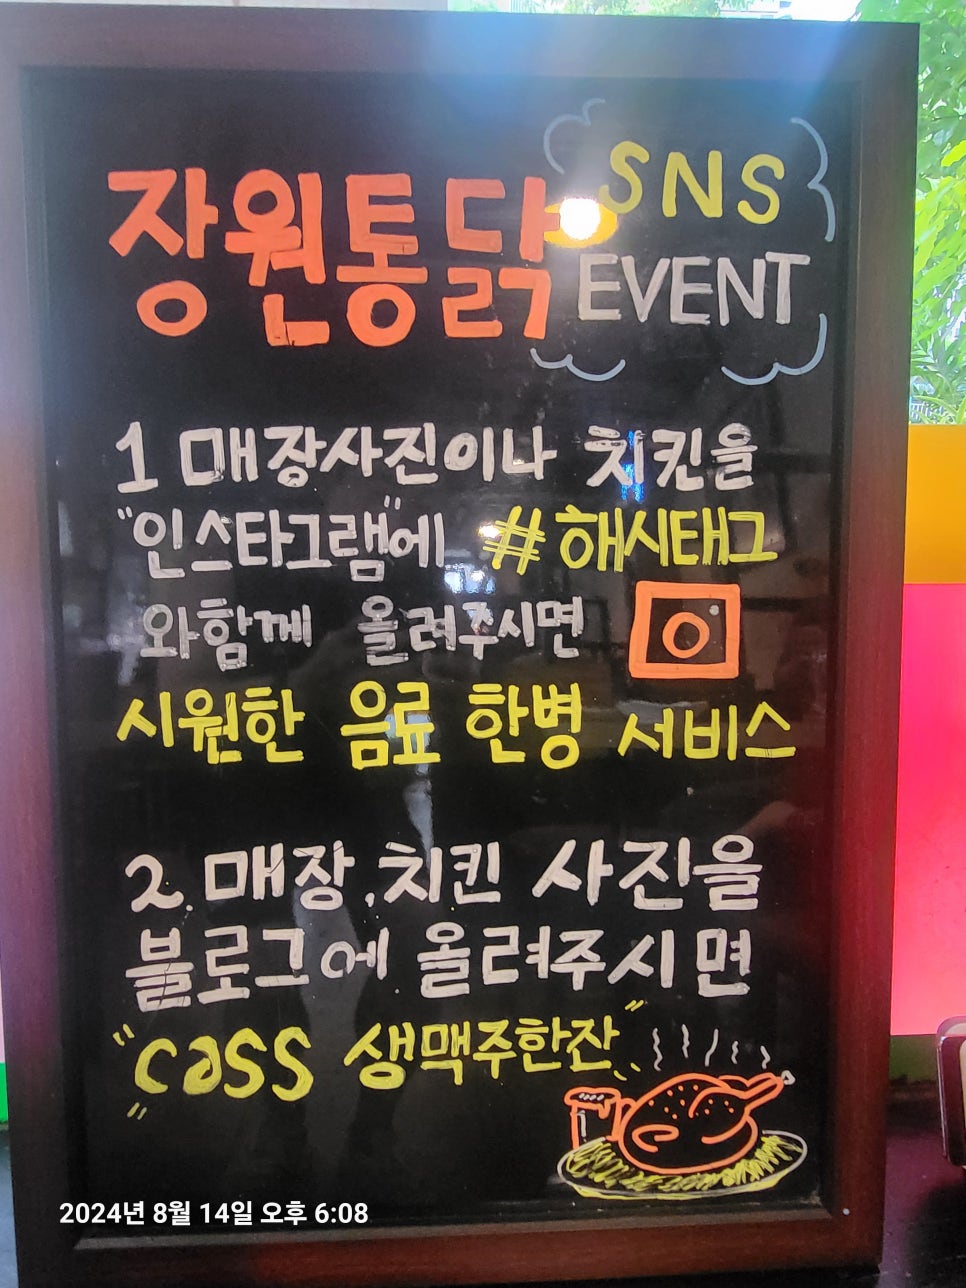 장원통닭 SNS
EVENT
1 매장사진이나 치킨을
"인스타그램"에 #해시태그
와함께 올려주시면
시원한 음료 한병 서비스
2. 매장, 치킨 사진을
블로그에 올려주시면
"CASS 생맥주한잔"
2024년 8월 14일 오후 6:08